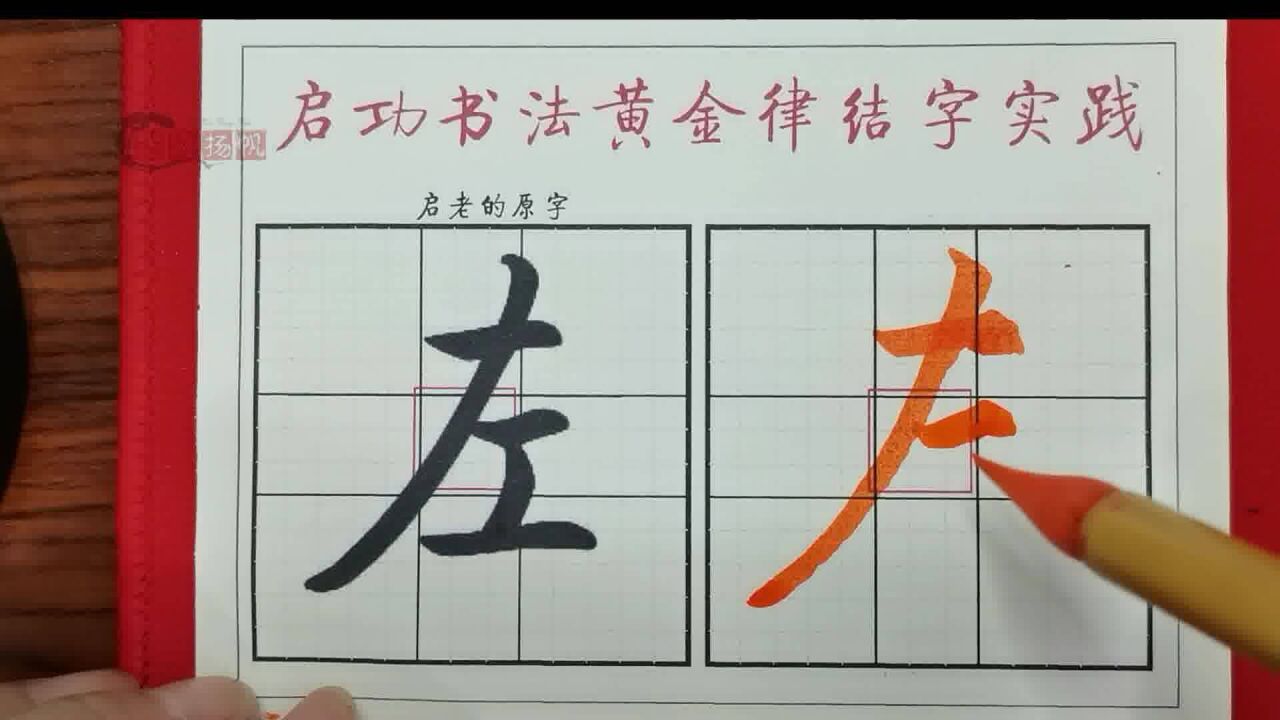 启功书法黄金律结字实践
扬帆
启老的原字
左